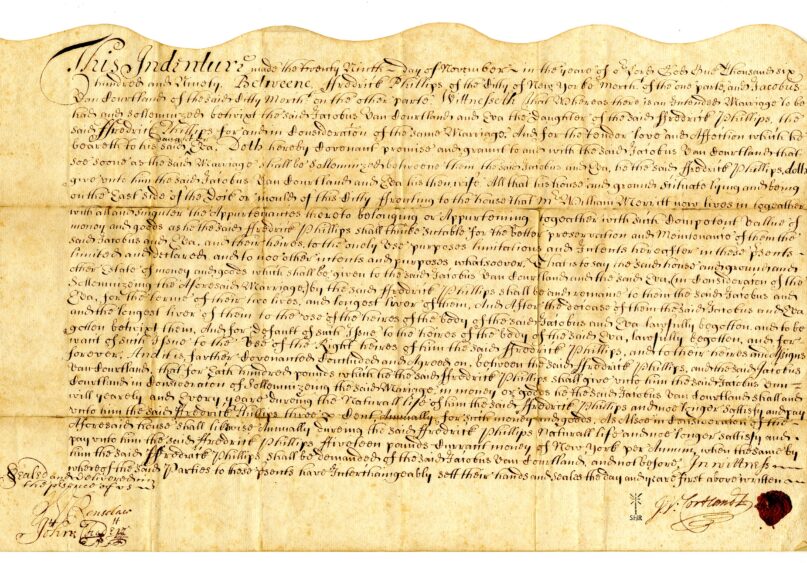 This Indenture made the twenty Ninth day of November in the yeare of Lord God One Thousand six
hundred and Ninety. Betweene ffredrick Phillips of the Citty of New Yorke Mercht. of the one parte, and Jacobus
Van Courtland of the said Citty Mercht. on the other parte. Witnesseth that Whereas there is an Intended Marriage to be
had and sollemnized betwixt the said Jacobus Van Courtland and Eva the daughter of the said ffredrick Phillips, the
said ffredrick Phillips for and in Consideration of the same Marriage, And for the tender love and Affection which he
beareth to his said daughter Eva. Doth hereby Covenant promise and grant to and with the said Jacobus Van Courtland that
soe soone as the said Marriage shall be sollemnized betweene them the said Jacobus and Eva, he the said ffredrick Phillips, doth
give unto him the said Jacobus Van Courtland and Eva his then wife All that his house and ground situate lying and being
on the East side of the of this Citty ffronting to the house that Mr. William Merritt now lives in together
with all and singuler the Appurtenances thereto belonging or Appurteining togeather with such Competent vallue of
money and goods as he the said ffredrick Phillips shall thinke suitable for the better preservation and Maintenance of them the
said Jacobus and Eva, and their heires, to the onely use purposes limitations and Intents hereafter in these psents
limited and declared and to noe other intents and purposes whatsoever. That is to say the said house and ground and
other Estate of money and goods which shall be given to the said Jacobus Van Courtland and the said Eva in Consideraton of the
Sollemnizing the Aforesaid Marriage, by the said ffredrick Phillips shall be and remaine to them the said Jacobus and
Eva, for the terme of their two lives, and longest liver of them, And After the decease of them the said Jacobus and Eva
and the longest liver of them to the use of the heires of the body of the said Jacobus and Eva lawfully begotten, and to be
gotten betwixt them, And for default of such Issue to the heires of the body of the said Eva, lawfully begotten, and for
want of such Issue to the Use of the Right heires of him the said ffredrick Phillips, and to their heires and Assignes
forever. And it is farther Covenanted Concluded and Agreed on, betweene the said ffredrick Phillips, and the said Jacobus
Van Courtland, that for Each hundred pounds which he the said ffredrick Phillips shall give unto him the said Jacobus Van
Courtland in Consideraton of Sollemnizing the said Marriage, in money or goods he the said Jacobus Van Courtland shall and
will yearely and Every yeare during the Naturall life of him the said ffredrick Phillips and noe longer sattisfy and pay
unto him the said ffredrick Phillips three p Cent Annually for such money and goods. As Also in Consideraton of the
Aforesaid house shall likewise Annually dureing the said ffredrick Phillips Naturall life and noe longer sattisfy and
pay unto him the said ffredrick Phillips ffiveteen pounds Currant money of New Yorke per Annum, when the same by
him the said ffredrick Phillips shall be demanded of the said Jacobus Van Courtland, and not before. In wittness
whereof the said Parties to these psents have Interchangeably sett their hands and seales the day and yeare first above written
Sealed and delivered
in the presence of us
Renselaer
John
J V Cortlandt
SHR